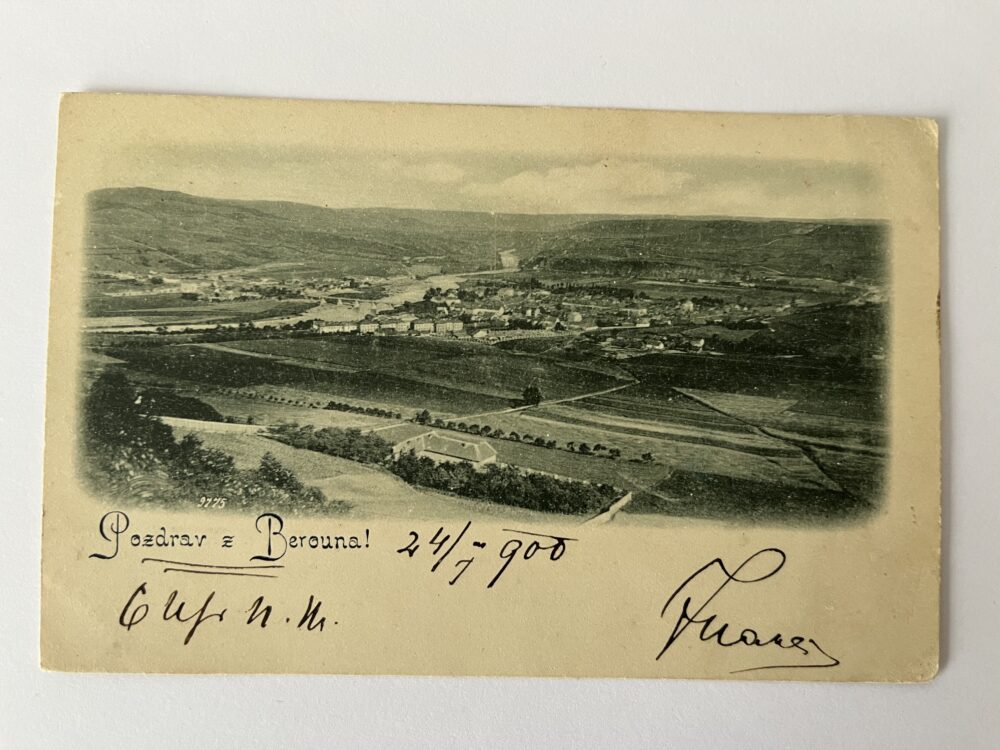 9775
Pozdrav z Berouna! 24/7 900
6 Uhr N. M.